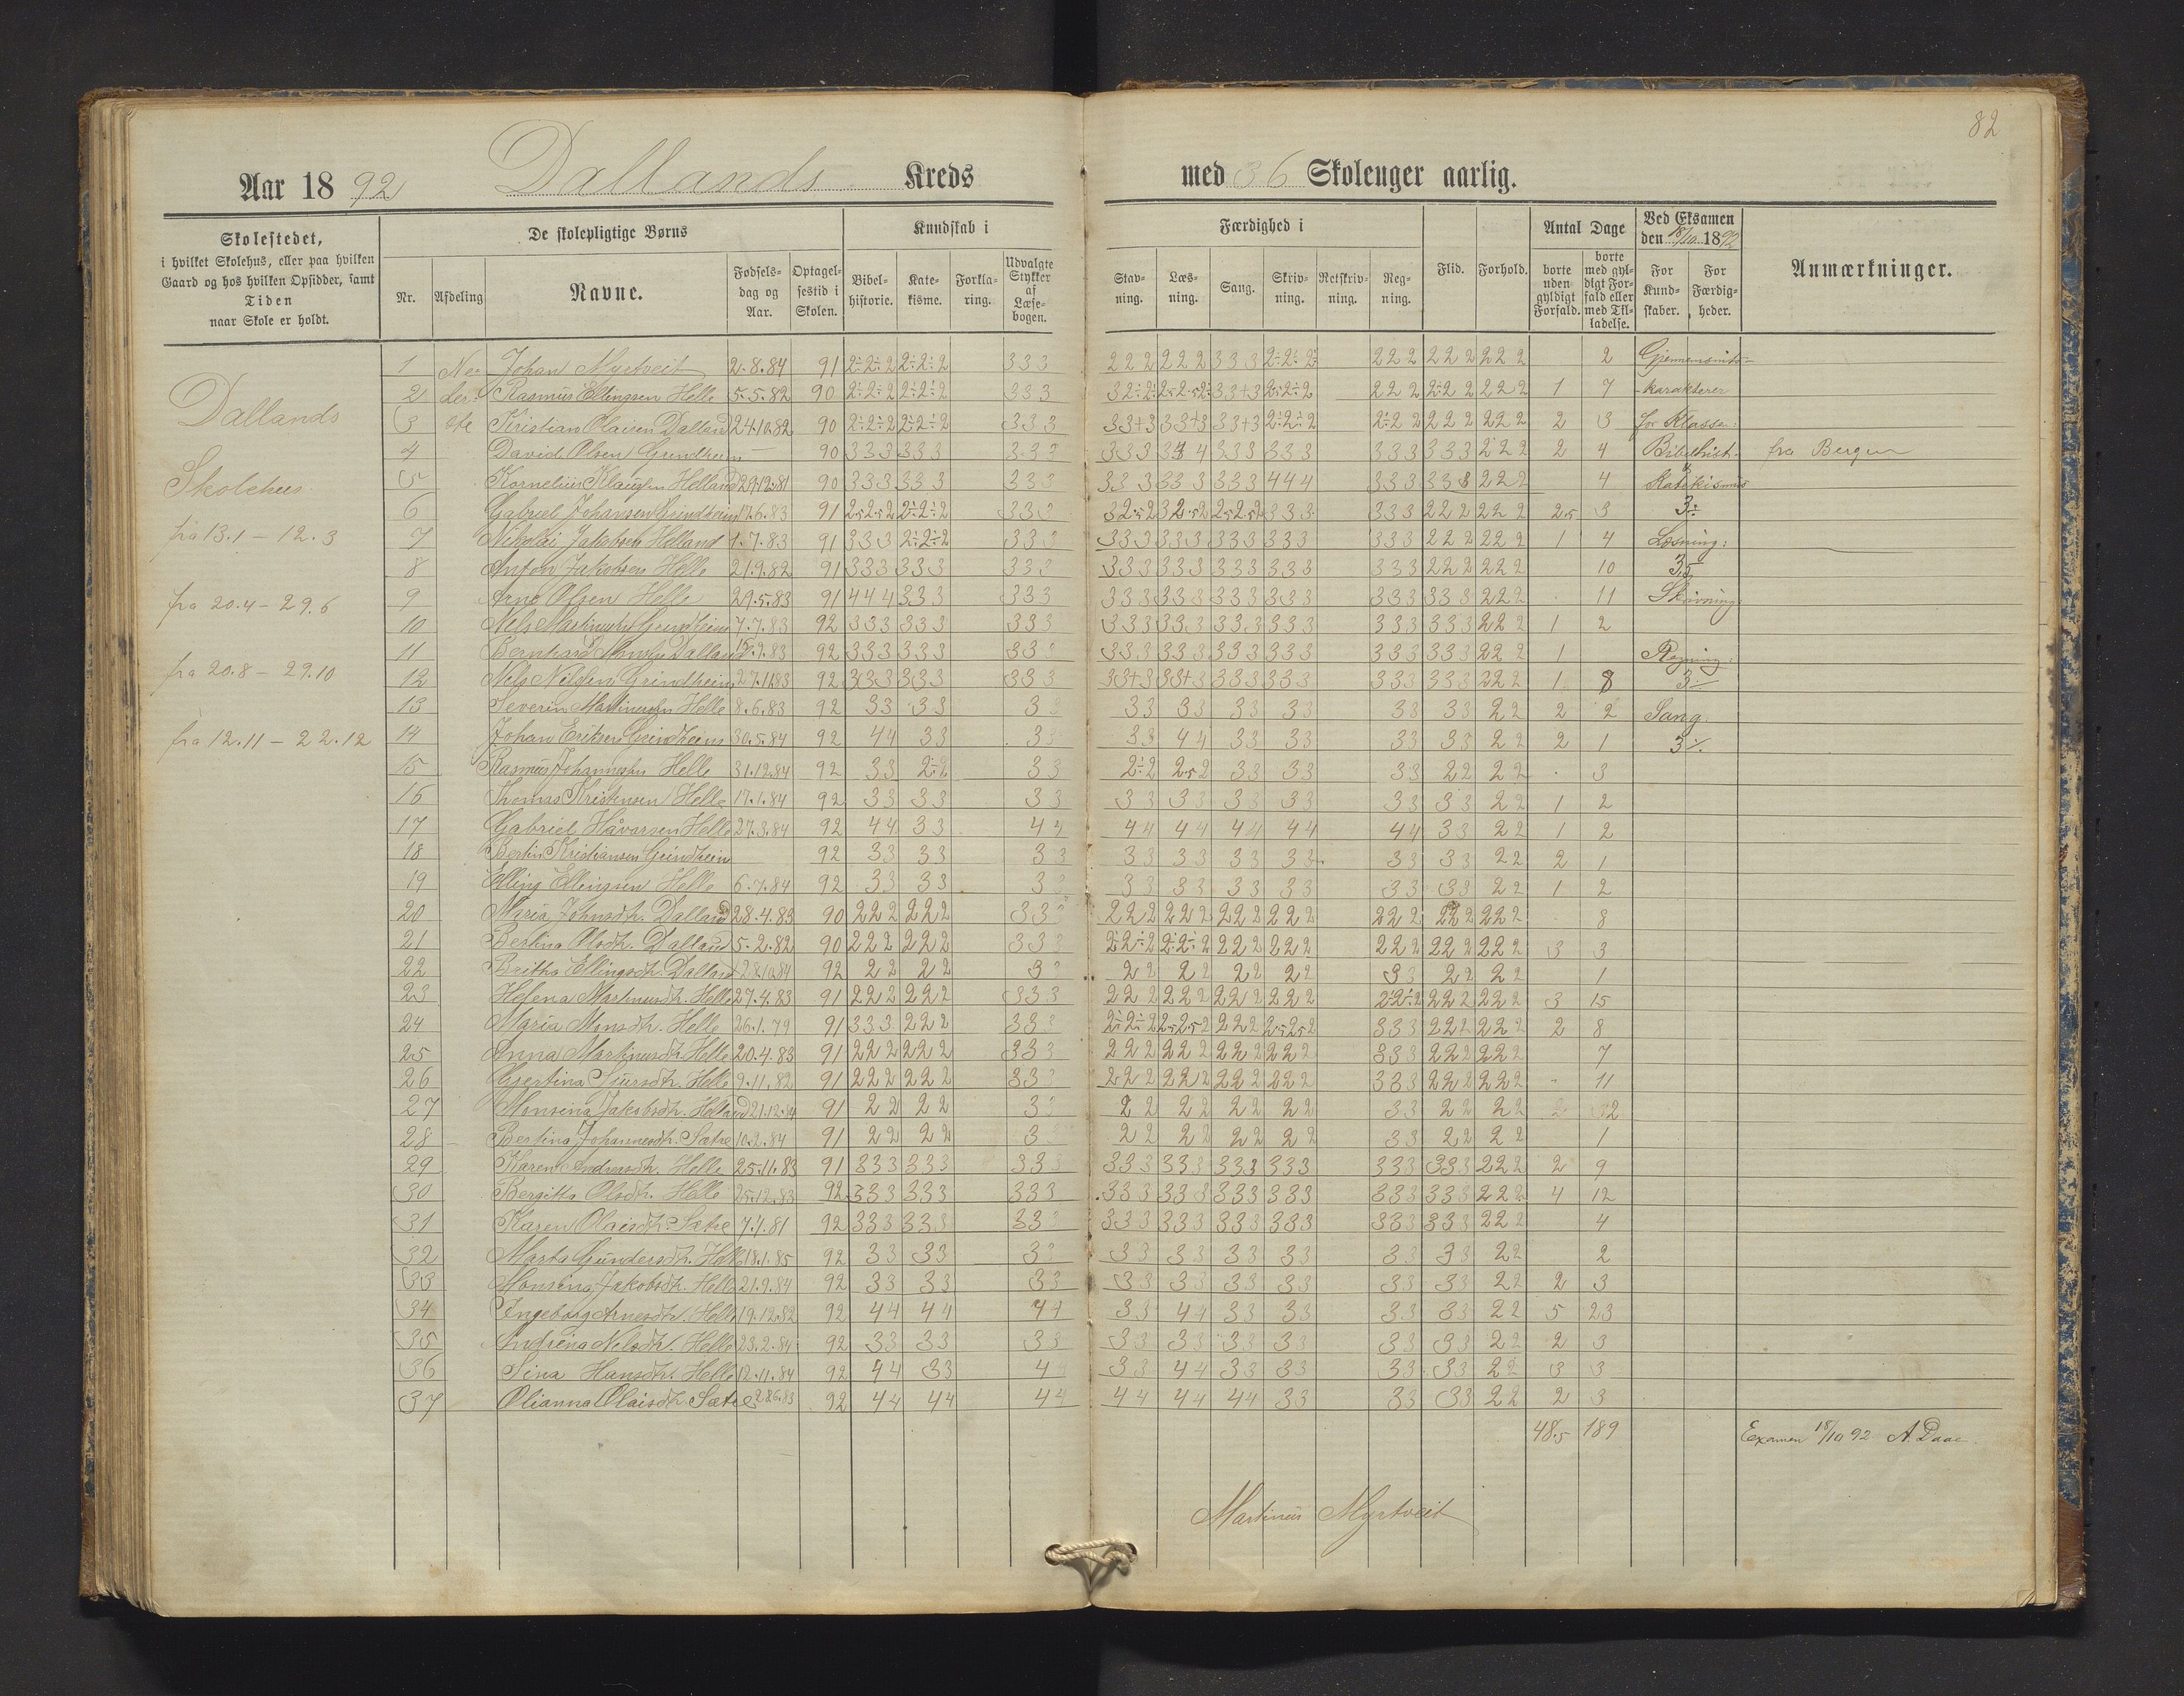 82
Aar 1892 Dallands Kreds med 36 Skoleuger aarlig.
Skolestedet,
i hvilket Skolehus, eller paa hvilken
Gaard og hos hvilken Opsidder, samt
Tiden
naar Skole er holdt.
De skolepligtige Børns
Nr. Afdeling Navne. Fødsels-dag og Aar. Optagel-sestid i Skolen.
Kundskab i
Bibel-historie. Kate-kisme. Forkla-ring. Udvalgte Stykker af Læse-bogen.
Færdighed i
Stav-ning. Læs-ning. Sang. Skriv-ning. Retskriv-ning. Reg-ning. Flid. Forhold.
Antal Dage
borte uden gyldigt Forfald. borte med gyl-digt For-fald eller med Til-ladelse.
Ved Eksamen den 18/10 1892
For Kund-skaber. For Færdig-heder.
Anmærkninger.
Dallands
Skolehus
fra 13.1 – 12.3
fra 20.4 – 29.6
fra 20.8 – 29.10
fra 12.11 – 22.12
1 Ne- Johan Myrtveit 2.8.84 91 2÷2÷2 2÷2÷2 333 222 222 333 2÷2÷2 222 222 222 2
2 ders- Rasmus Ellingsen Helle 5.5.82 90 2÷2÷2 2÷2÷2 333 222 222 222 1 7 karakterer
3 ste Kristian Olaisen Dalland 24.10.82 90 2÷2÷2 2÷2÷2 333 33+3 33+3 33+3 2÷2÷2 2÷22 222 222 2 3 for Klassen:
4 David Olsen Grindheim — 90 333 333 333 333 333 333 333 222 2 4 Bibelhist. fra Bergen
5 Kornelius Klausen Helland 29.12.81 90 333 333 333 333 333 333 444 333 333 222 4 Katekismus
6 Gabriel Johansen Grindheim 17.6.83 91 333 333 333 222 222 2.5 3 3÷
7 Nikolai Jakobsen Helland 1.7.83 91 333 2÷2÷2 333 333 333 333 333 333 222 222 1 4 Læsning:
8 Anton Jakobsen Helle 21.9.82 91 333 333 333 333 333 333 333 333 222 222 10 3,5
9 Arne Olsen Helle 29.5.83 91 444 333 333 333 333 333 333 333 333 222 11 Skrivning:
10 Nels Martinussen Grindheim 7.7.83 92 333 333 333 333 333 333 333 333 333 222 1 2
11 Bernhard Monsen Dalland 15.9.83 92 333 333 333 333 333 333 333 333 333 222 1 Regning:
12 Nels Nilsen Grindheim 27.11.83 92 333 333 333 33+3 33+3 333 333 333 333 222 1 8 3÷
13 Severin Martinussen Helle 8.6.83 92 33 33 33 33 33 33 33 33 33 22 2 2 Sang:
14 Johan Eriksen Grindheim 30.5.84 92 44 33 33 33 44 33 33 33 33 22 2 1 3÷
15 Rasmus Johannessen Helle 31.12.84 92 33 2÷2 33 2÷2 2.52 33 33 33 22 22 3
16 Thomas Kristensen Helle 17.1.84 92 33 33 33 33 33 33 33 33 33 22 1 2
17 Gabriel Håvarsen Helle 27.3.84 92 44 33 44 44 44 44 44 44 33 22 1 2
18 Bertin Kristiansen Grindheim 92 33 33 33 33 33 33 33 33 33 22 2 1
19 Elling Ellingsen Helle 6.7.84 92 33 33 33 33 33 33 33 33 33 22 1 2
20 Maria Johnsdtr. Dalland 28.4.83 90 222 222 333 222 222 222 222 222 222 222 8
21 Bertina Olsdtr. Dalland 5.2.82 90 222 222 333 2÷2÷2 2÷2÷2 222 222 222 222 222 3 3
22 Britha Ellingsdtr. Dalland 28.10.84 92 22 22 33 22 22 22 22 33 22 22 1
23 Helena Martinusdtr. Helle 27.4.83 91 222 222 333 222 222 222 222 2÷2÷2 222 222 3 15
24 Maria Monsdtr. Helle 26.1.79 91 333 222 333 2÷2÷2 2.52.52 222 2.52.52 333 222 222 2 8
25 Anna Martinusdtr. Helle 20.4.83 91 222 222 333 222 222 222 222 333 222 222 7
26 Gjertina Sjursdtr. Helle 9.11.82 91 222 222 333 222 222 222 222 333 222 222 11
27 Monsina Jakobsdtr. Helland 21.12.84 91 22 22 33 22 22 22 22 33 22 22 2 32
28 Bertina Johannesdtr. Sætre 10.2.84 91 22 22 3 22 22 22 22 33 22 22 1
29 Karen Andreasdtr. Helle 25.11.83 91 333 333 333 333 333 333 333 333 333 222 2 9
30 Bergitta Olsdtr. Helle 25.12.83 92 333 333 333 333 333 333 333 333 333 222 4 12
31 Karen Olaisdtr. Sætre 7.4.81 92 333 333 333 333 333 333 333 333 333 222 4
32 Marta Gundersdtr. Helle 18.1.85 92 33 33 33 33 33 33 33 33 33 22 2
33 Monsina Jakobsdtr. Helle 21.9.84 92 33 33 33 33 33 33 33 33 33 22 2 3
34 Ingeborg Arnesdtr. Helle 19.12.82 92 44 44 44 33 44 33 33 33 33 22 5 23
35 Andrina Nelsdtr. Helle 23.2.84 92 33 33 33 33 33 33 33 33 33 22 2 3
36 Sina Hansdtr. Helle 12.11.84 92 44 33 44 33 44 33 33 33 33 22 3 3
37 Olianna Olaisdtr. Sætre 28.6.83 92 44 44 44 44 44 44 33 33 33 22 2 3
48.5 189 Examen 18/10 92 A. Daae
Martinus Myrtveit